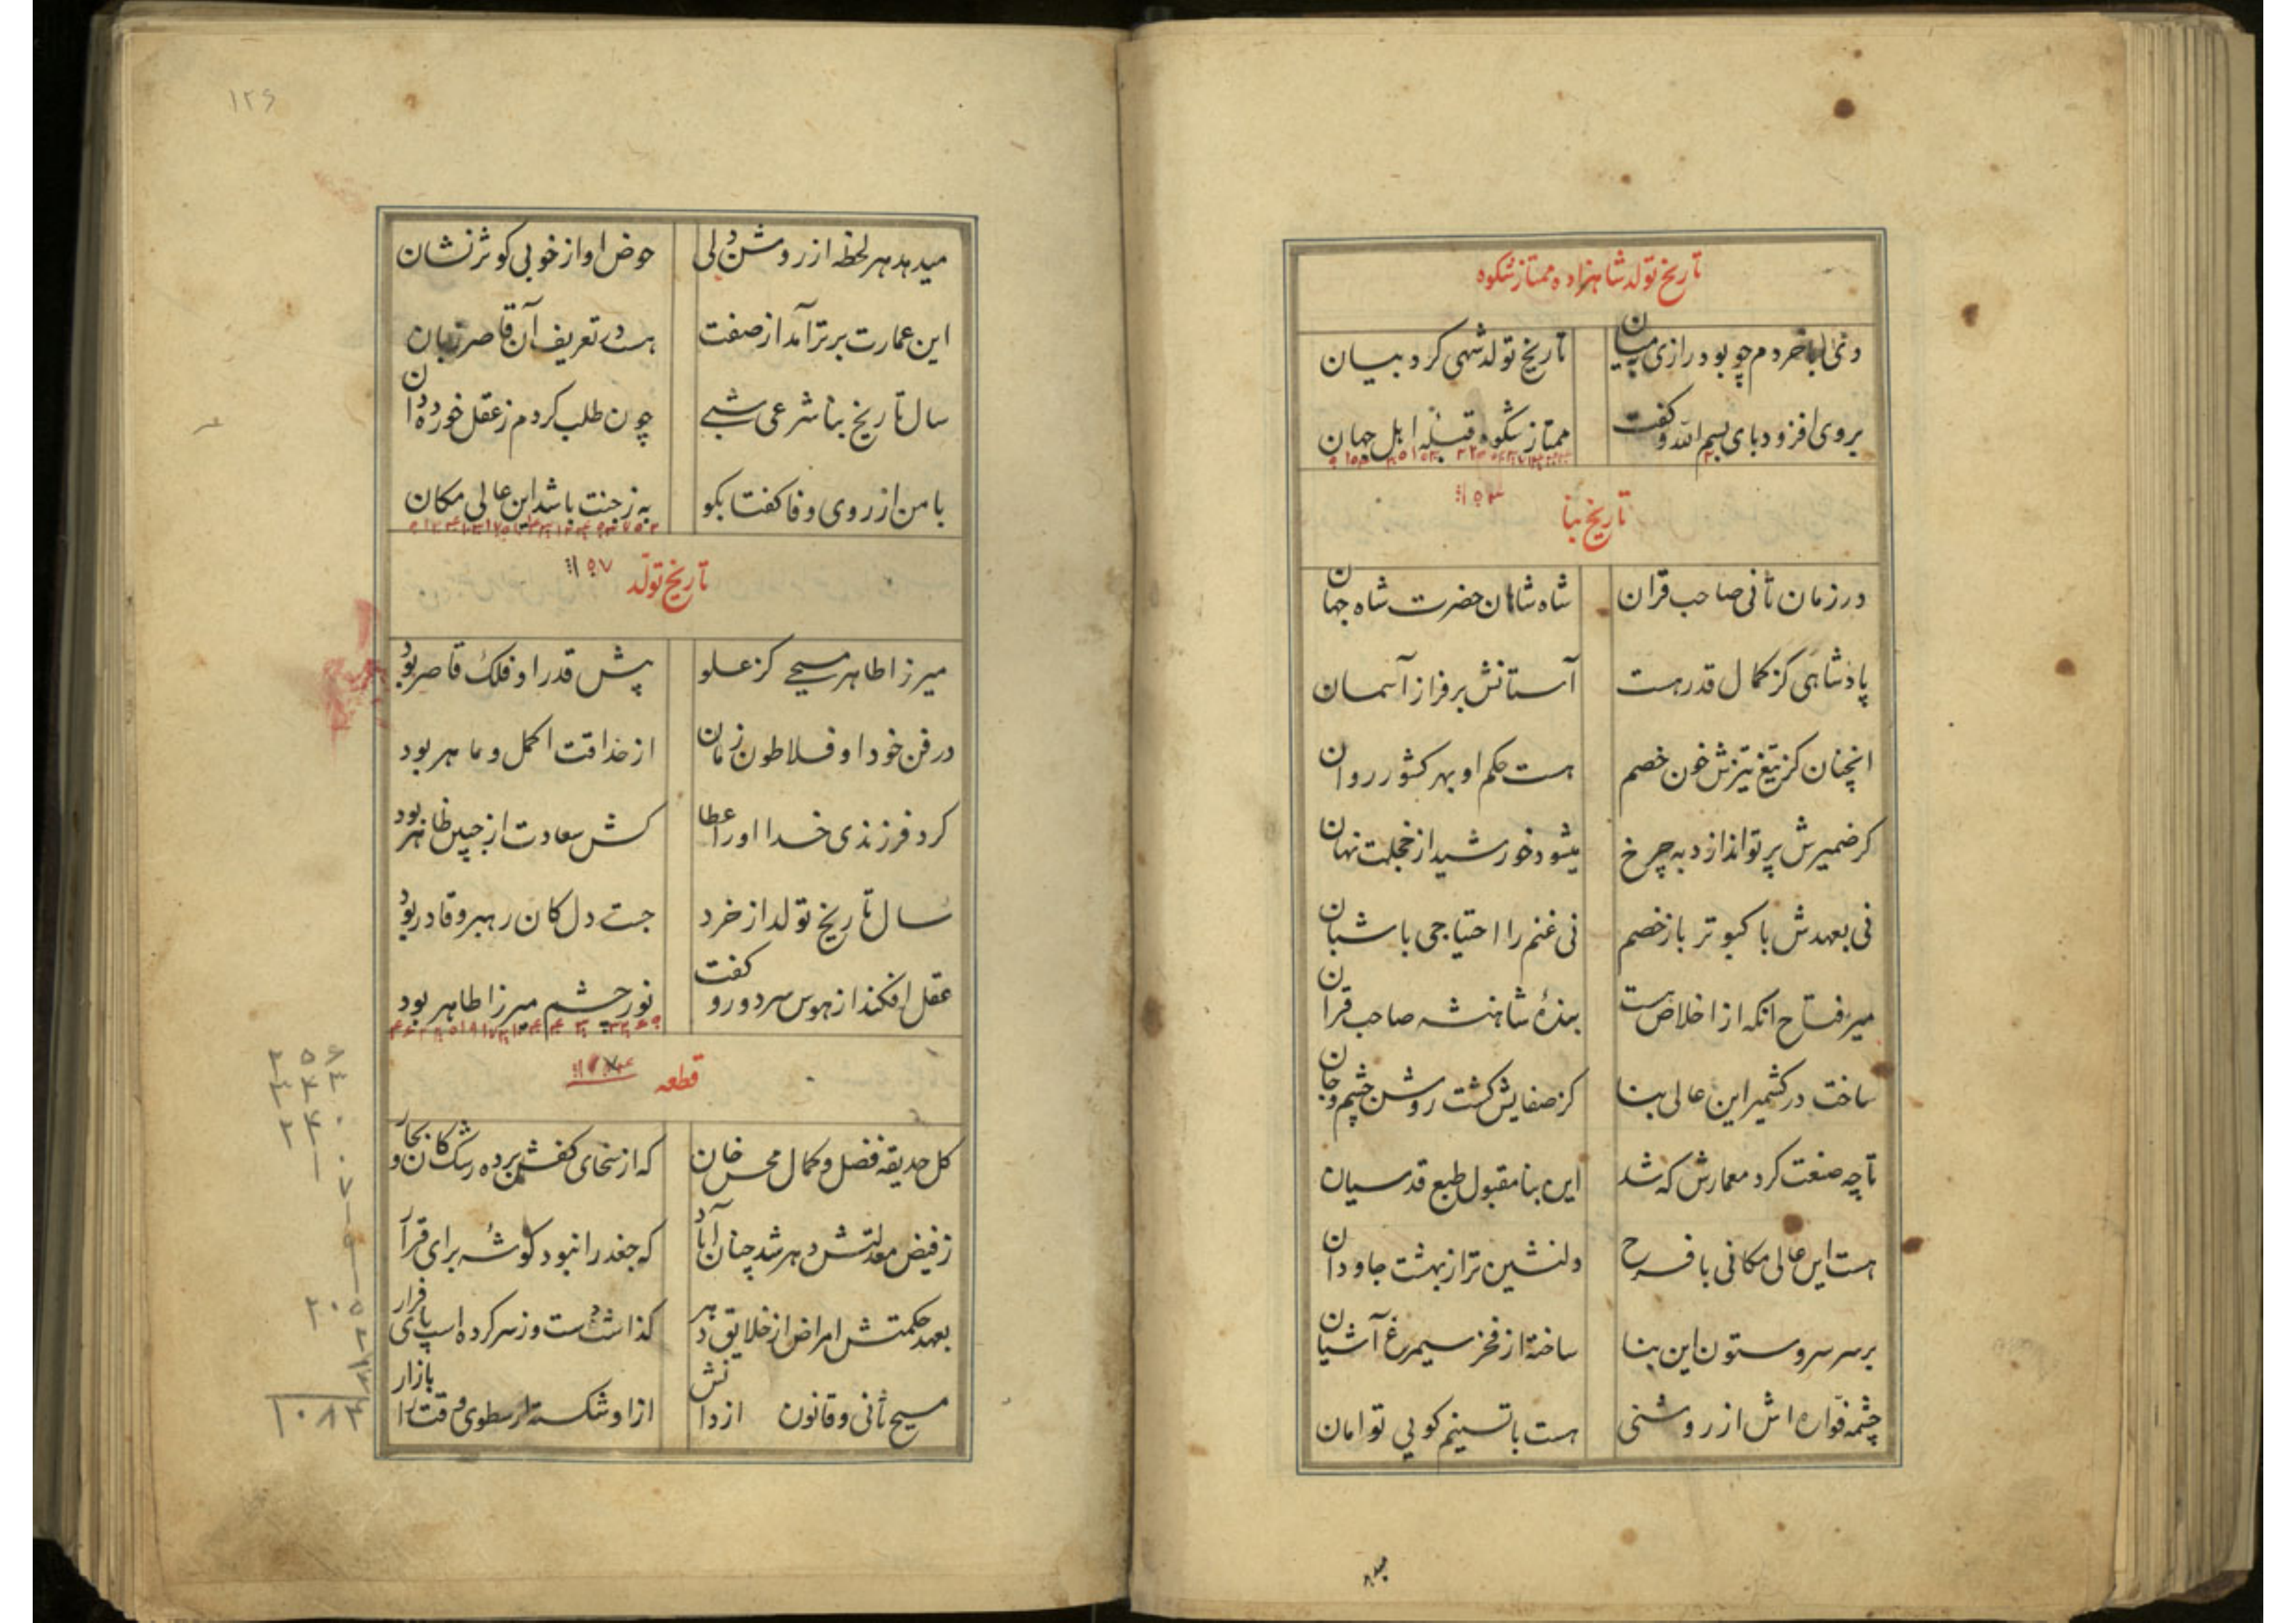 تاریخ تولد شاهزاده ممتاز شکوه
دی با خردم چو بود رازی بمیان تاریخ تولد شهی کرد بیان
بروی افزود بای بسم الله و کفت ممتاز شکوه قبله اهل جهان
تاریخ بنا
در زمان ثانی صاحب قران شاه شاهان حضرت شاه جهان
پادشاهی کز کمال قدر هست آستانش بر فراز آسمان
انچنان کز تیغ تیزش خون خصم هست حکم او بهر کشور روان
کر ضمیرش پرتو اندازد به چرخ میشود خورشید از خجلت نهان
نی بعهدش با کبوتر باز خصم نی غنم را احتیاجی با شبان
میر فتاح انکه از اخلاص هست بندهٔ شاهنشه صاحب قران
ساخت در کشمیر این عالی بنا کز صفایش کشت روشن چشم و جان
تا چه صنعت کرد معمارش که شد این بنا مقبول طبع قدسیان
هست این عالی مکانی با فرح دلنشین تر از بهشت جاودان
بر سر سرو ستون این بنا ساخته از فخر سیمرغ آشیان
چشمه فواره اش از روشنی هست با تسنیم کویی توامان
میدهد
۱۲۶
میدهد هر لحظه از روشن دلی حوض او از خوبی کوثر نشان
این عمارت برتر آمد از صفت هست در تعریف آن قاصر زبان
سال تاریخ بنا شرعی شبی چون طلب کردم ز عقل خورده دان
با من از روی وفا کفتا بکو به ز جنت باشد این عالی مکان
تاریخ تولد
میرزا طاهر مسیحی کز علو پیش قدر او فلک قاصر بود
در فن خود او فلاطون زمان از حذاقت اکمل و ماهر بود
کرد فرزندی خدا او را عطا کش سعادت از جبین ظاهر بود
سال تاریخ تولد از خرد جست دل کان رهبر و قادر بود
عقل افکند از هوس سر دور و کفت نور چشم میرزا طاهر بود
قطعه
کل حدیقه فضل و کمال محسن خان که از سخای کفش برده رشک کان و بحار
ز فیض معدلتش دهر شد چنان آباد که جغد را نبود کوشه برای قرار
بعهد حکمتش امراض از خلایق دهر کذاشت دست و ز سر کرده اسپ پای فرار
مسیح ثانی و قانون از دانش ازو شکسته ارسطوی وقت را بازار
۱۰۸۴